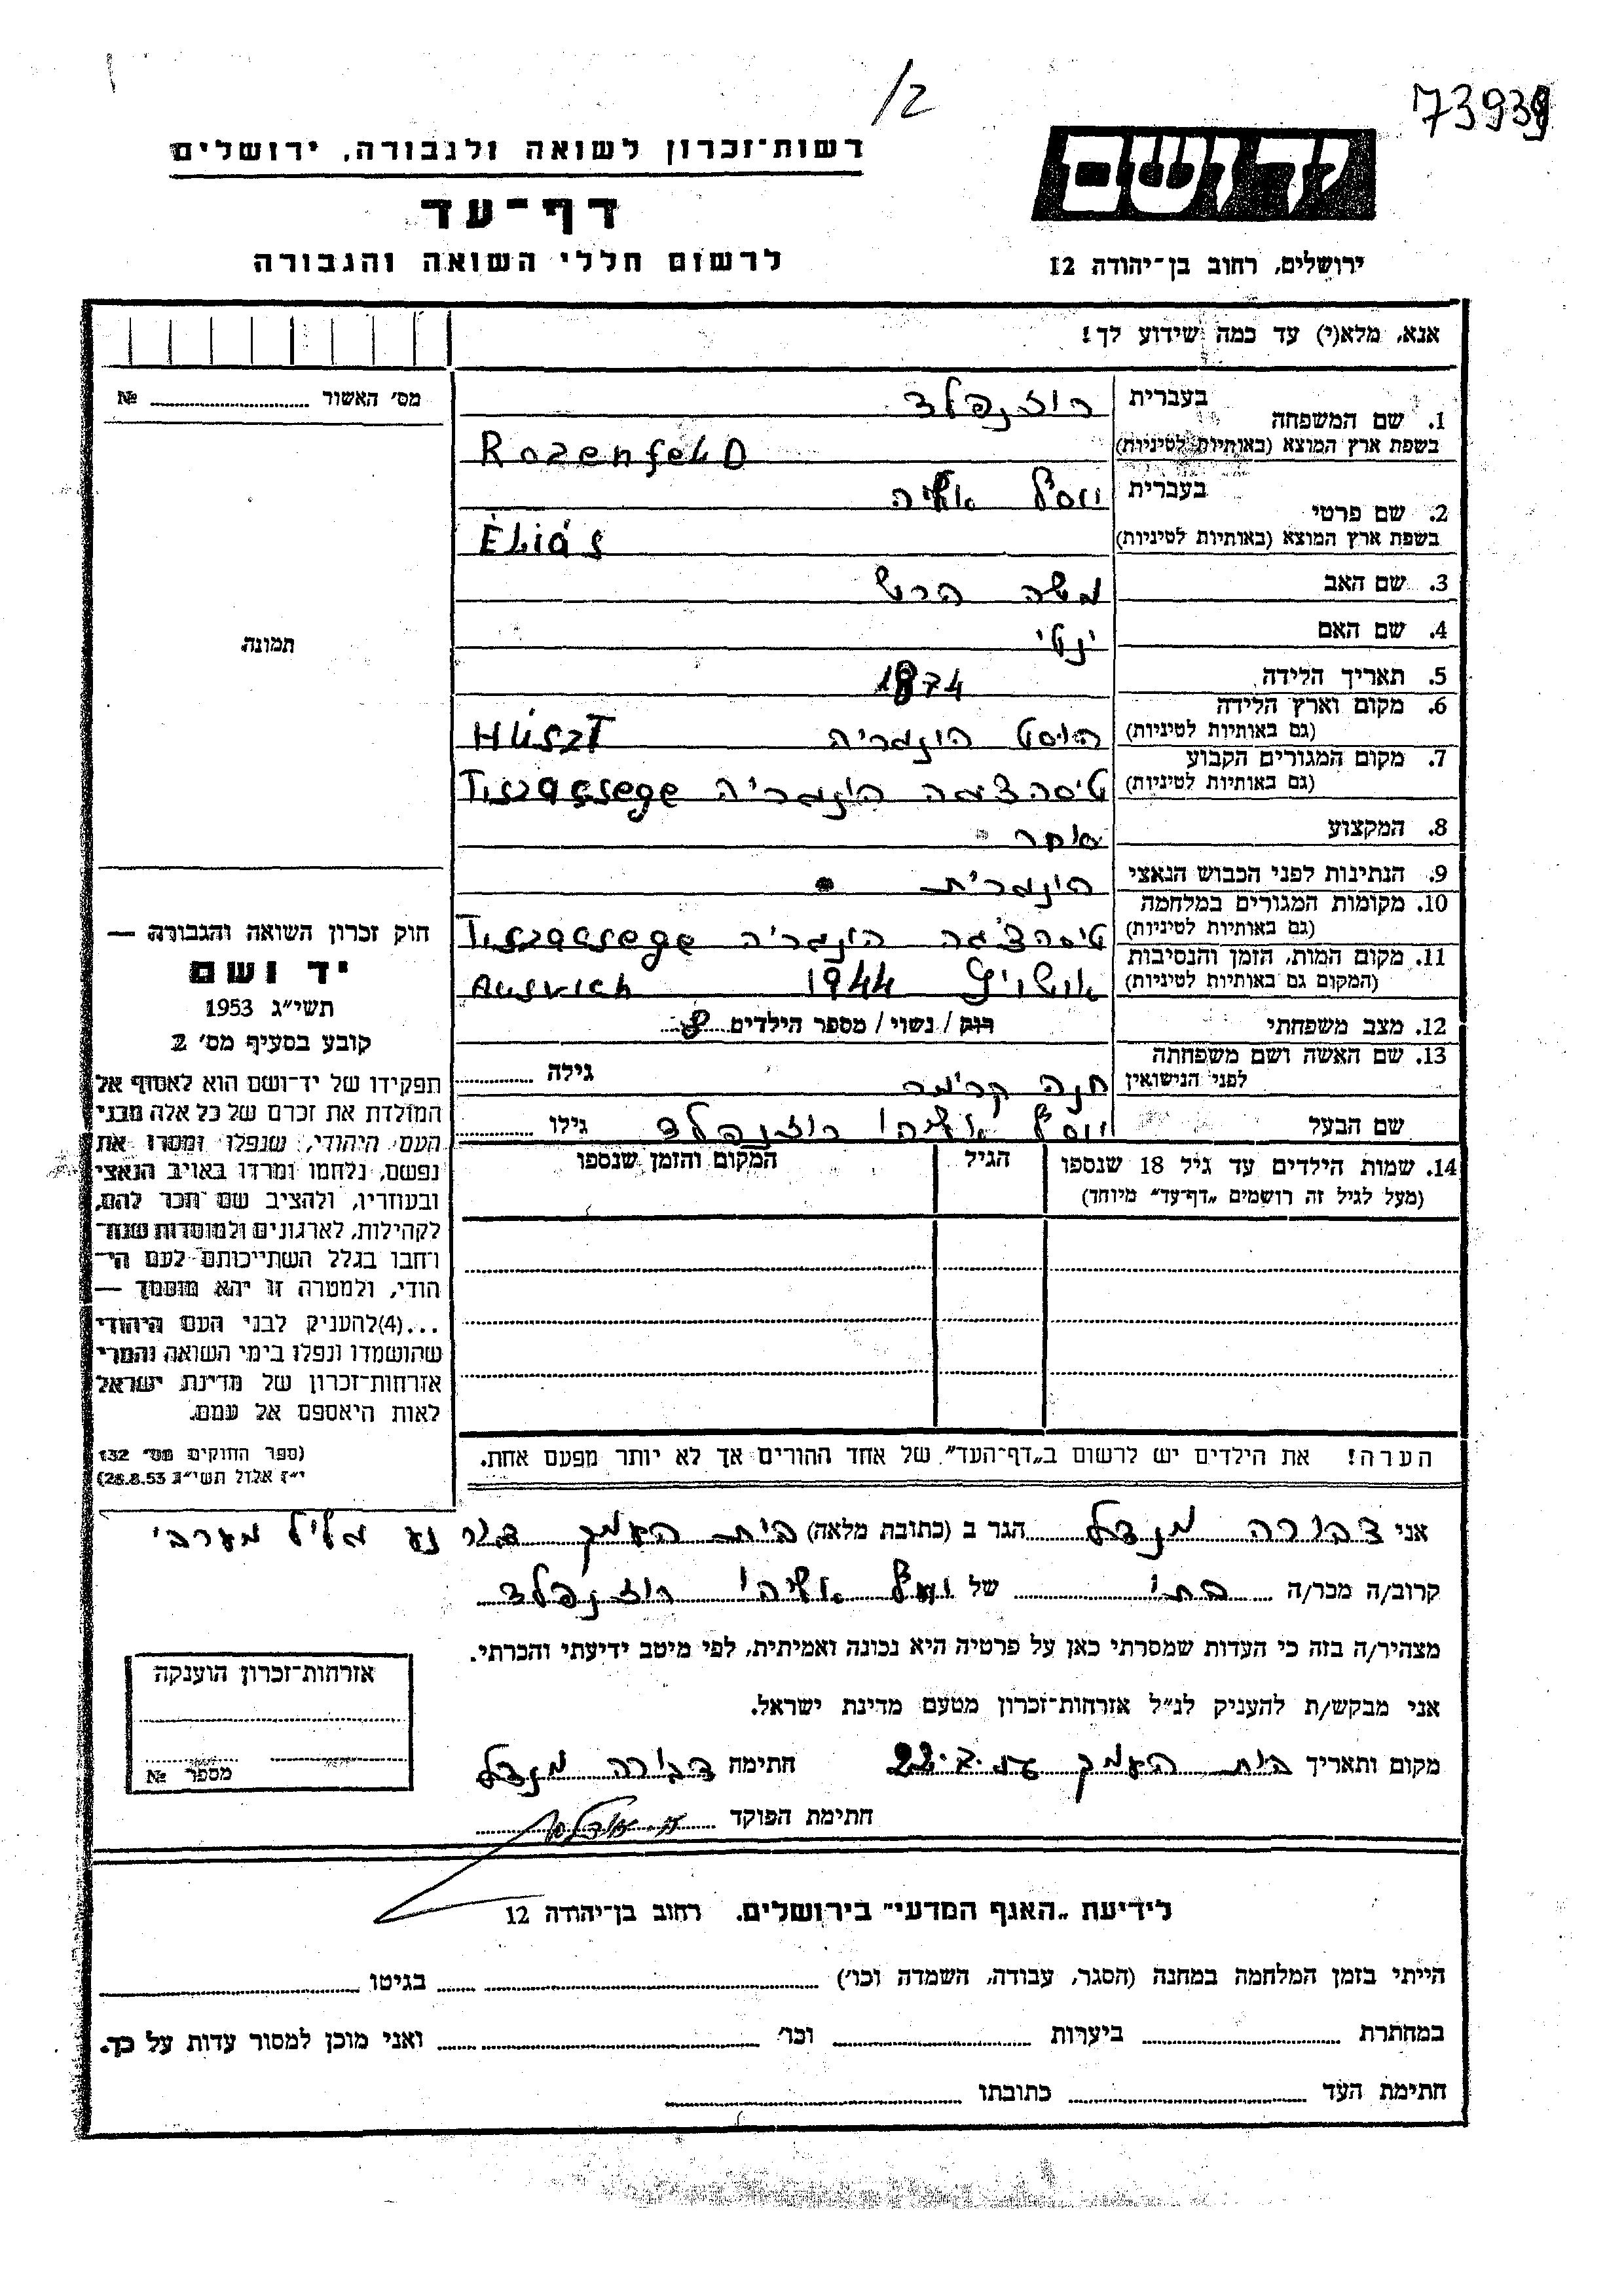 /2
73939
רשות־זכרון לשואה ולגבורה, ירושלים
ידושם
דף־עד
לרשום חללי השואה והגבורה
ירושלים, רחוב בן־יהודה 12
אנא, מלא(י) עד כמה שידוע לך!
מס׳ האשור № 
1. שם המשפחה בעברית רוזנפלד
בשפת ארץ המוצא (באותיות לטיניות) Rozenfeld
2. שם פרטי בעברית יוסף אליהו
בשפת ארץ המוצא (באותיות לטיניות) Éliás
3. שם האב משה הרש
4. שם האם ינטי
5. תאריך הלידה 1874
6. מקום וארץ הלידה
(גם באותיות לטיניות) הוסט הונגריה Húszt
7. מקום המגורים הקבוע
(גם באותיות לטיניות) טיסהצגה הונגריה Tiszacsege
8. המקצוע סוחר
9. הנתינות לפני הכבוש הנאצי הונגרית
10. מקומות המגורים במלחמה
(גם באותיות לטיניות) טיסהצ׳גה הונגריה Tiszacsege
11. מקום המות, הזמן והנסיבות
(המקום גם באותיות לטיניות) אושויץ 1944 Ausvich
12. מצב משפחתי רוק / נשוי / מספר הילדים 8
13. שם האשה ושם משפחתה
לפני הנישואין חנה קרימר גילה
שם הבעל יוסף אליהו רוזנפלד גילו
14. שמות הילדים עד גיל 18 שנספו הגיל המקום והזמן שנספו
(מעל לגיל זה רושמים „דף־עד״ מיוחד)
הערה! את הילדים יש לרשום ב„דף־העד״ של אחד ההורים אך לא יותר מפעם אחת.
תמונה
חוק זכרון השואה והגבורה —
יד ושם
תשי״ג 1953
קובע בסעיף מס׳ 2
תפקידו של יד־ושם הוא לאסוף אל
המולדת את זכרם של כל אלה מבני
העם היהודי, שנפלו ומסרו את
נפשם, נלחמו ומרדו באויב הנאצי
ובעוזריו, ולהציב שם וזכר להם,
לקהילות, לארגונים ולמוסדות שנח־
רחבו בגלל השתייכותם לעם הי־
הודי, ולמטרה זו יהא מוסמך —
...(4)להעניק לבני העם היהודי
שהושמדו ונפלו בימי השואה והמרי
אזרחות־זכרון של מדינת ישראל
לאות היאספם אל עמם.
(ספר החוקים מס׳ 132
י״ז אלול תשי״ג 28.8.53)
אני דבורה מנדל הגר ב (כתובת מלאה) בית העמק דאר נע גליל מערבי
קרוב/ה מכר/ה בתו של יוסף אליהו רוזנפלד
מצהיר/ה בזה כי העדות שמסרתי כאן על פרטיה היא נכונה ואמיתית, לפי מיטב ידיעתי והכרתי.
אני מבקש/ת להעניק לנ״ל אזרחות־זכרון מטעם מדינת ישראל.
מקום ותאריך בית העמק חתימה דבורה מנדל
חתימת הפוקד
אזרחות־זכרון הוענקה
מספר №
לידיעת „האגף המדעי״ בירושלים, רחוב בן־יהודה 12
הייתי בזמן המלחמה במחנה (הסגר, עבודה, השמדה וכו׳) בגיטו
במחתרת ביערות וכו׳ ואני מוכן למסור עדות על כך.
חתימת העד כתובתו